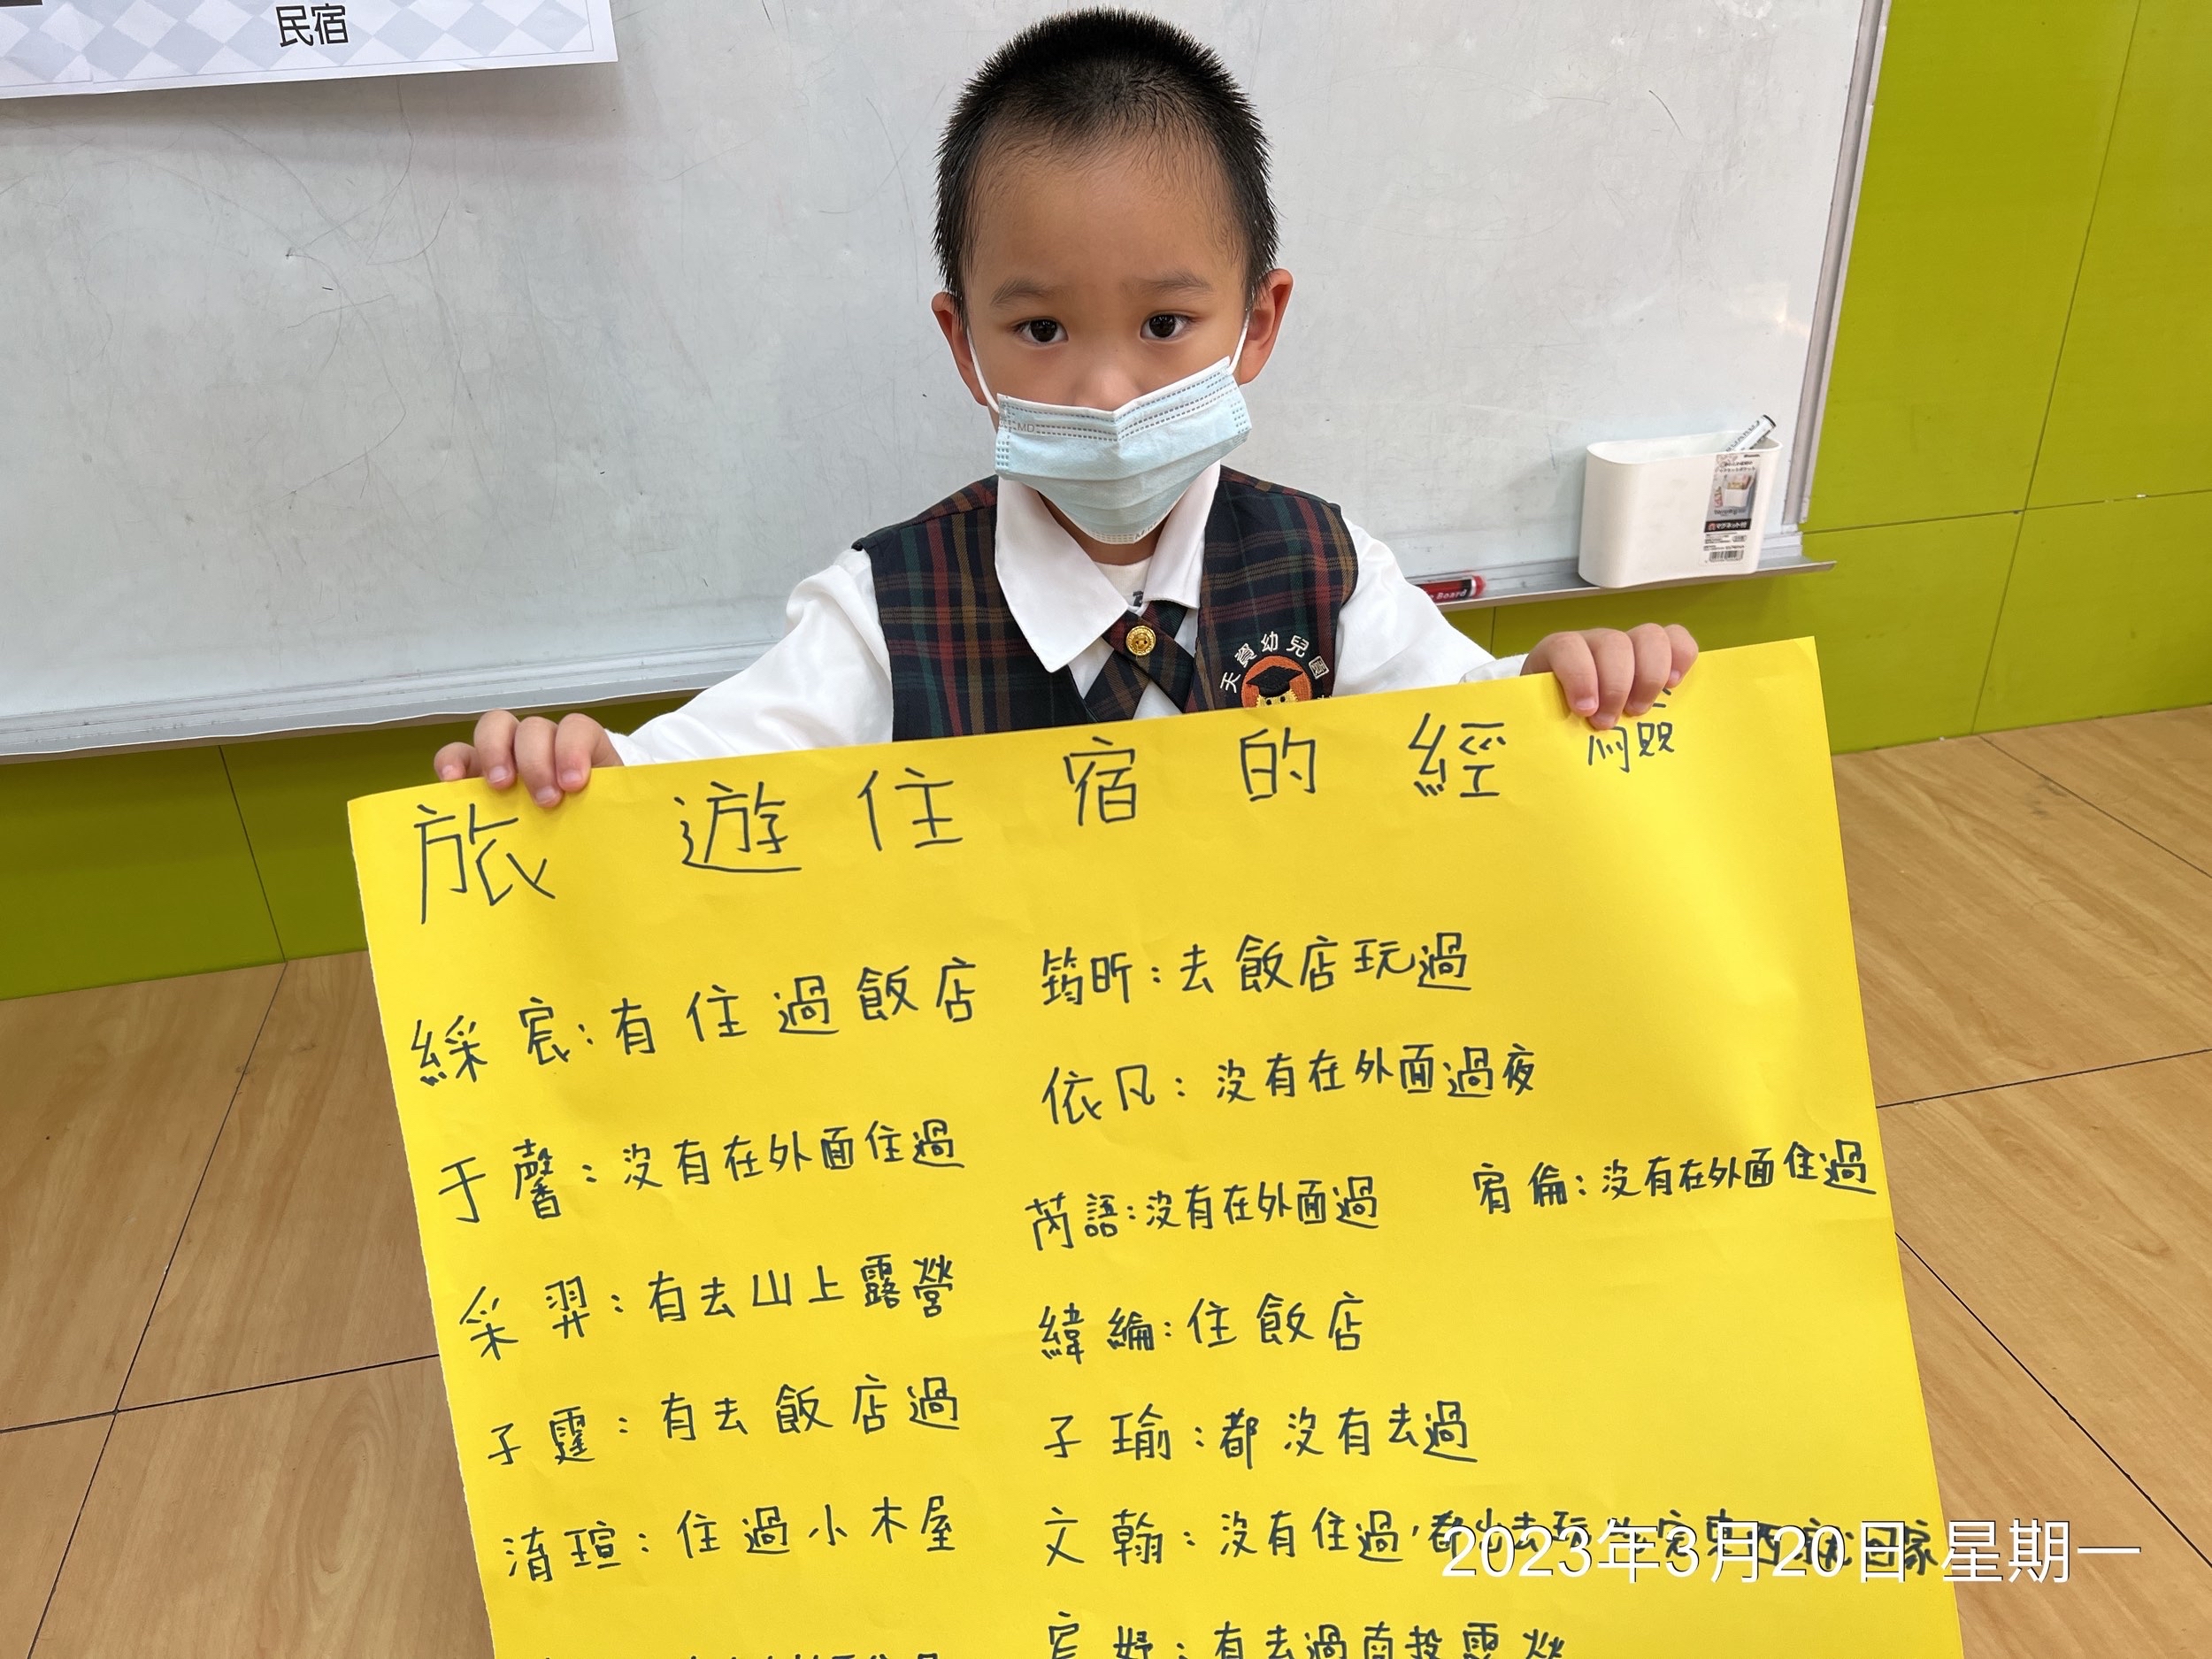 民宿
MD
天資幼兒園
Board
マグネット付
旅遊住宿的經驗
綵宸:有住過飯店
筠昕:去飯店玩過
依凡:沒有在外面過夜
于馨:沒有在外面住過
芮語:沒有在外面過
宥倫:沒有在外面住過
采羿:有去山上露營
緯綸:住飯店
子霆:有去飯店過
子瑜:都沒有去過
淯瑄:住過小木屋
文翰:沒有住過,都出去玩
回家
妤:有去過南投露營
2023年3月20日 星期一